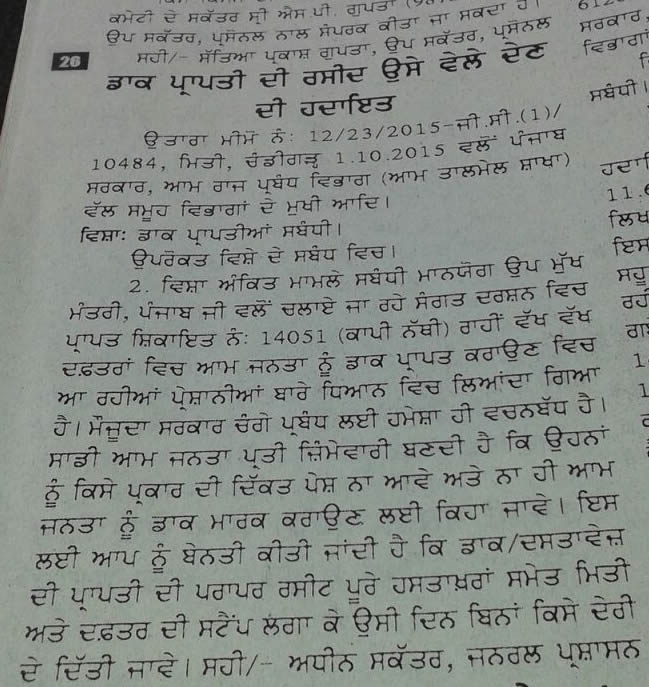 ਕਮੇਟੀ ਦੇ ਸਕੱਤਰ ਸ੍ਰੀ ਐਸ.ਪੀ. ਗੁਪਤਾ
ਉਪ ਸਕੱਤਰ, ਪ੍ਰਸੋਨਲ ਨਾਲ ਸੰਪਰਕ ਕੀਤਾ ਜਾ ਸਕਦਾ ਹੈ।
ਸਹੀ/- ਸੱਤਿਆ ਪ੍ਰਕਾਸ਼ ਗੁਪਤਾ, ਉਪ ਸਕੱਤਰ, ਪ੍ਰਸੋਨਲ
26
ਡਾਕ ਪ੍ਰਾਪਤੀ ਦੀ ਰਸੀਦ ਉਸੇ ਵੇਲੇ ਦੇਣ
ਦੀ ਹਦਾਇਤ
ਉਤਾਰਾ ਮੀਮੋ ਨੰ: 12/23/2015-ਜੀ.ਸੀ.(1)/
10484, ਮਿਤੀ, ਚੰਡੀਗੜ੍ਹ 1.10.2015 ਵਲੋਂ ਪੰਜਾਬ
ਸਰਕਾਰ, ਆਮ ਰਾਜ ਪ੍ਰਬੰਧ ਵਿਭਾਗ (ਆਮ ਤਾਲਮੇਲ ਸ਼ਾਖਾ)
ਵੱਲ ਸਮੂਹ ਵਿਭਾਗਾਂ ਦੇ ਮੁਖੀ ਆਦਿ।
ਵਿਸ਼ਾ: ਡਾਕ ਪ੍ਰਾਪਤੀਆਂ ਸਬੰਧੀ।
ਉਪਰੋਕਤ ਵਿਸ਼ੇ ਦੇ ਸਬੰਧ ਵਿਚ।
2. ਵਿਸ਼ਾ ਅੰਕਿਤ ਮਾਮਲੇ ਸਬੰਧੀ ਮਾਨਯੋਗ ਉਪ ਮੁੱਖ
ਮੰਤਰੀ, ਪੰਜਾਬ ਜੀ ਵਲੋਂ ਚਲਾਏ ਜਾ ਰਹੇ ਸੰਗਤ ਦਰਸ਼ਨ ਵਿਚ
ਪ੍ਰਾਪਤ ਸ਼ਿਕਾਇਤ ਨੰ: 14051 (ਕਾਪੀ ਨੱਥੀ) ਰਾਹੀਂ ਵੱਖ ਵੱਖ
ਦਫ਼ਤਰਾਂ ਵਿਚ ਆਮ ਜਨਤਾ ਨੂੰ ਡਾਕ ਪ੍ਰਾਪਤ ਕਰਾਉਣ ਵਿਚ
ਆ ਰਹੀਆਂ ਪ੍ਰੇਸ਼ਾਨੀਆਂ ਬਾਰੇ ਧਿਆਨ ਵਿਚ ਲਿਆਂਦਾ ਗਿਆ
ਹੈ। ਮੌਜੂਦਾ ਸਰਕਾਰ ਚੰਗੇ ਪ੍ਰਬੰਧ ਲਈ ਹਮੇਸ਼ਾ ਹੀ ਵਚਨਬੱਧ ਹੈ।
ਸਾਡੀ ਆਮ ਜਨਤਾ ਪ੍ਰਤੀ ਜ਼ਿੰਮੇਵਾਰੀ ਬਣਦੀ ਹੈ ਕਿ ਉਹਨਾਂ
ਨੂੰ ਕਿਸੇ ਪ੍ਰਕਾਰ ਦੀ ਦਿੱਕਤ ਪੇਸ਼ ਨਾ ਆਵੇ ਅਤੇ ਨਾ ਹੀ ਆਮ
ਜਨਤਾ ਨੂੰ ਡਾਕ ਮਾਰਕ ਕਰਾਉਣ ਲਈ ਕਿਹਾ ਜਾਵੇ। ਇਸ
ਲਈ ਆਪ ਨੂੰ ਬੇਨਤੀ ਕੀਤੀ ਜਾਂਦੀ ਹੈ ਕਿ ਡਾਕ/ਦਸਤਾਵੇਜ਼
ਦੀ ਪ੍ਰਾਪਤੀ ਦੀ ਪਰਾਪਰ ਰਸੀਟ ਪੂਰੇ ਹਸਤਾਖ਼ਰਾਂ ਸਮੇਤ ਮਿਤੀ
ਅਤੇ ਦਫ਼ਤਰ ਦੀ ਸਟੈਂਪ ਲਗਾ ਕੇ ਉਸੀ ਦਿਨ ਬਿਨਾਂ ਕਿਸੇ ਦੇਰੀ
ਦੇ ਦਿੱਤੀ ਜਾਵੇ। ਸਹੀ/- ਅਧੀਨ ਸਕੱਤਰ, ਜਨਰਲ ਪ੍ਰਸ਼ਾਸਨ
ਸਰਕਾਰ,
ਸਬੰਧੀ।